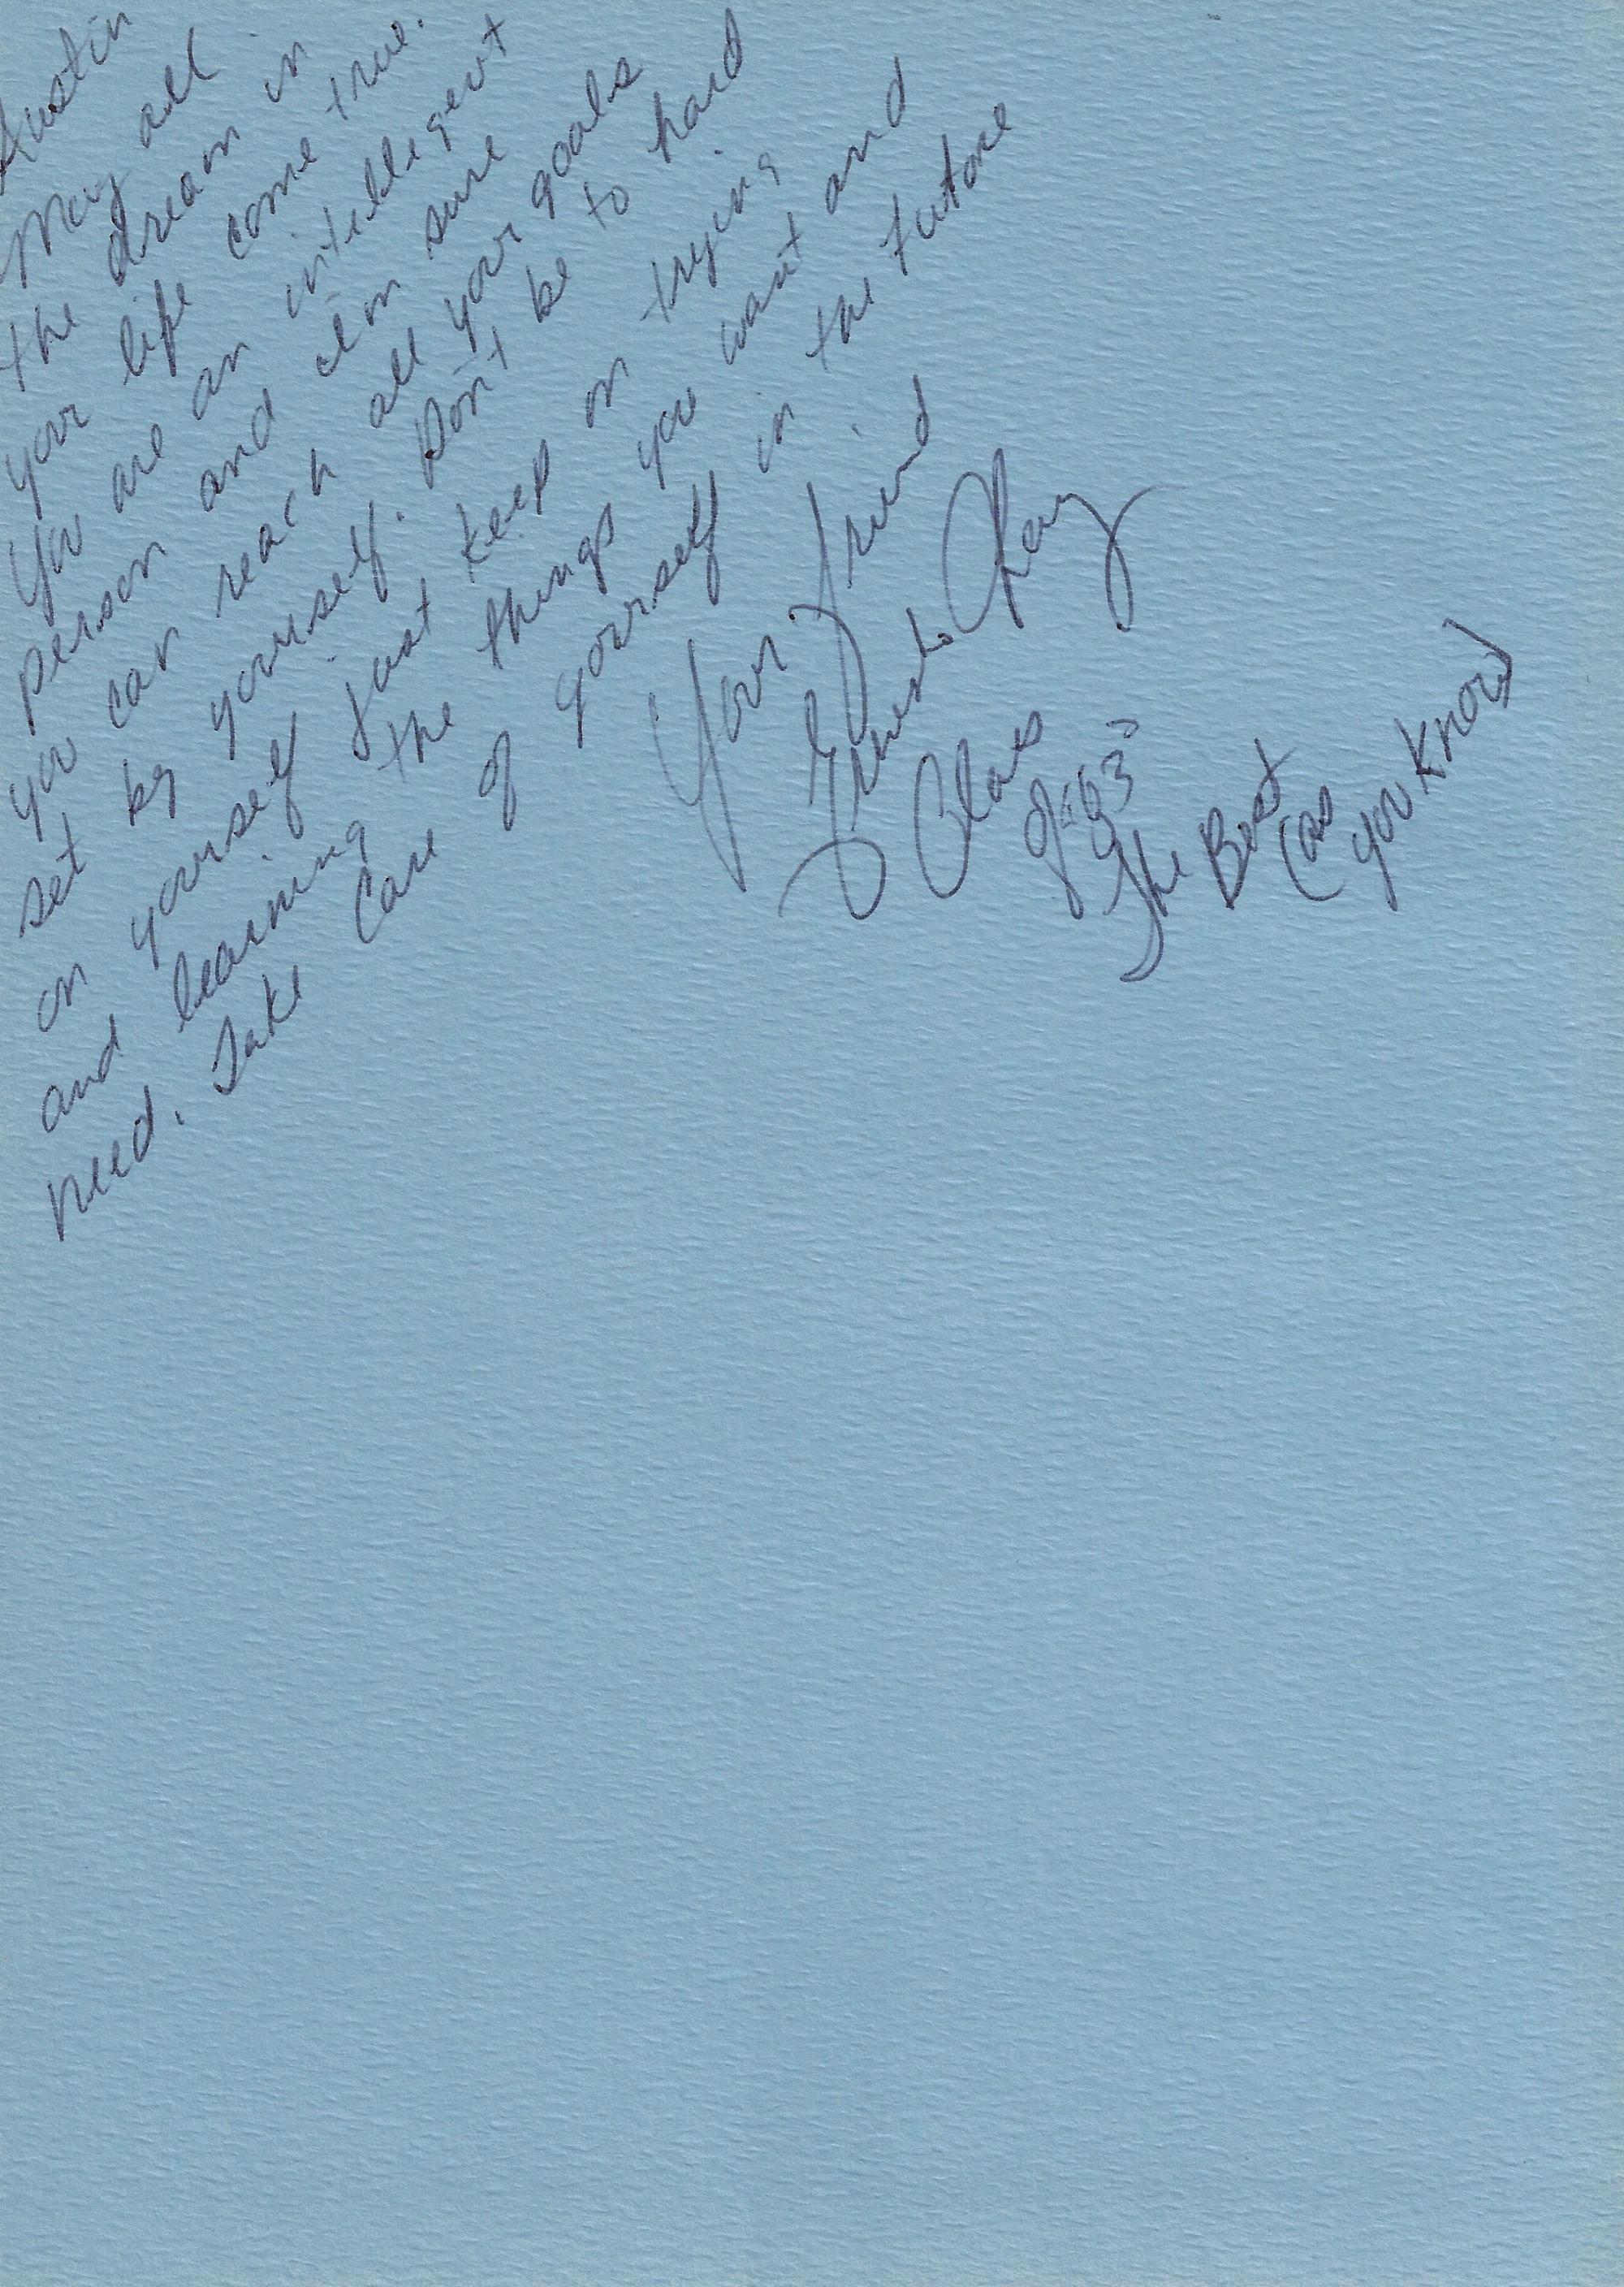 Austin
May all
the dream in
your life come true.
You are an intellegent
person and I'm sure
you can reach all your goals
set by yourself. Don't be to hard
on yourself just keep on trying
and learning the things you want and
need. Take Care of yourself in the future
Your Friend
Class
of "63"
The Best
(as
you know)